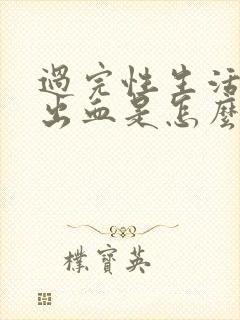 過完性生活
出血是怎麼
樸寶英